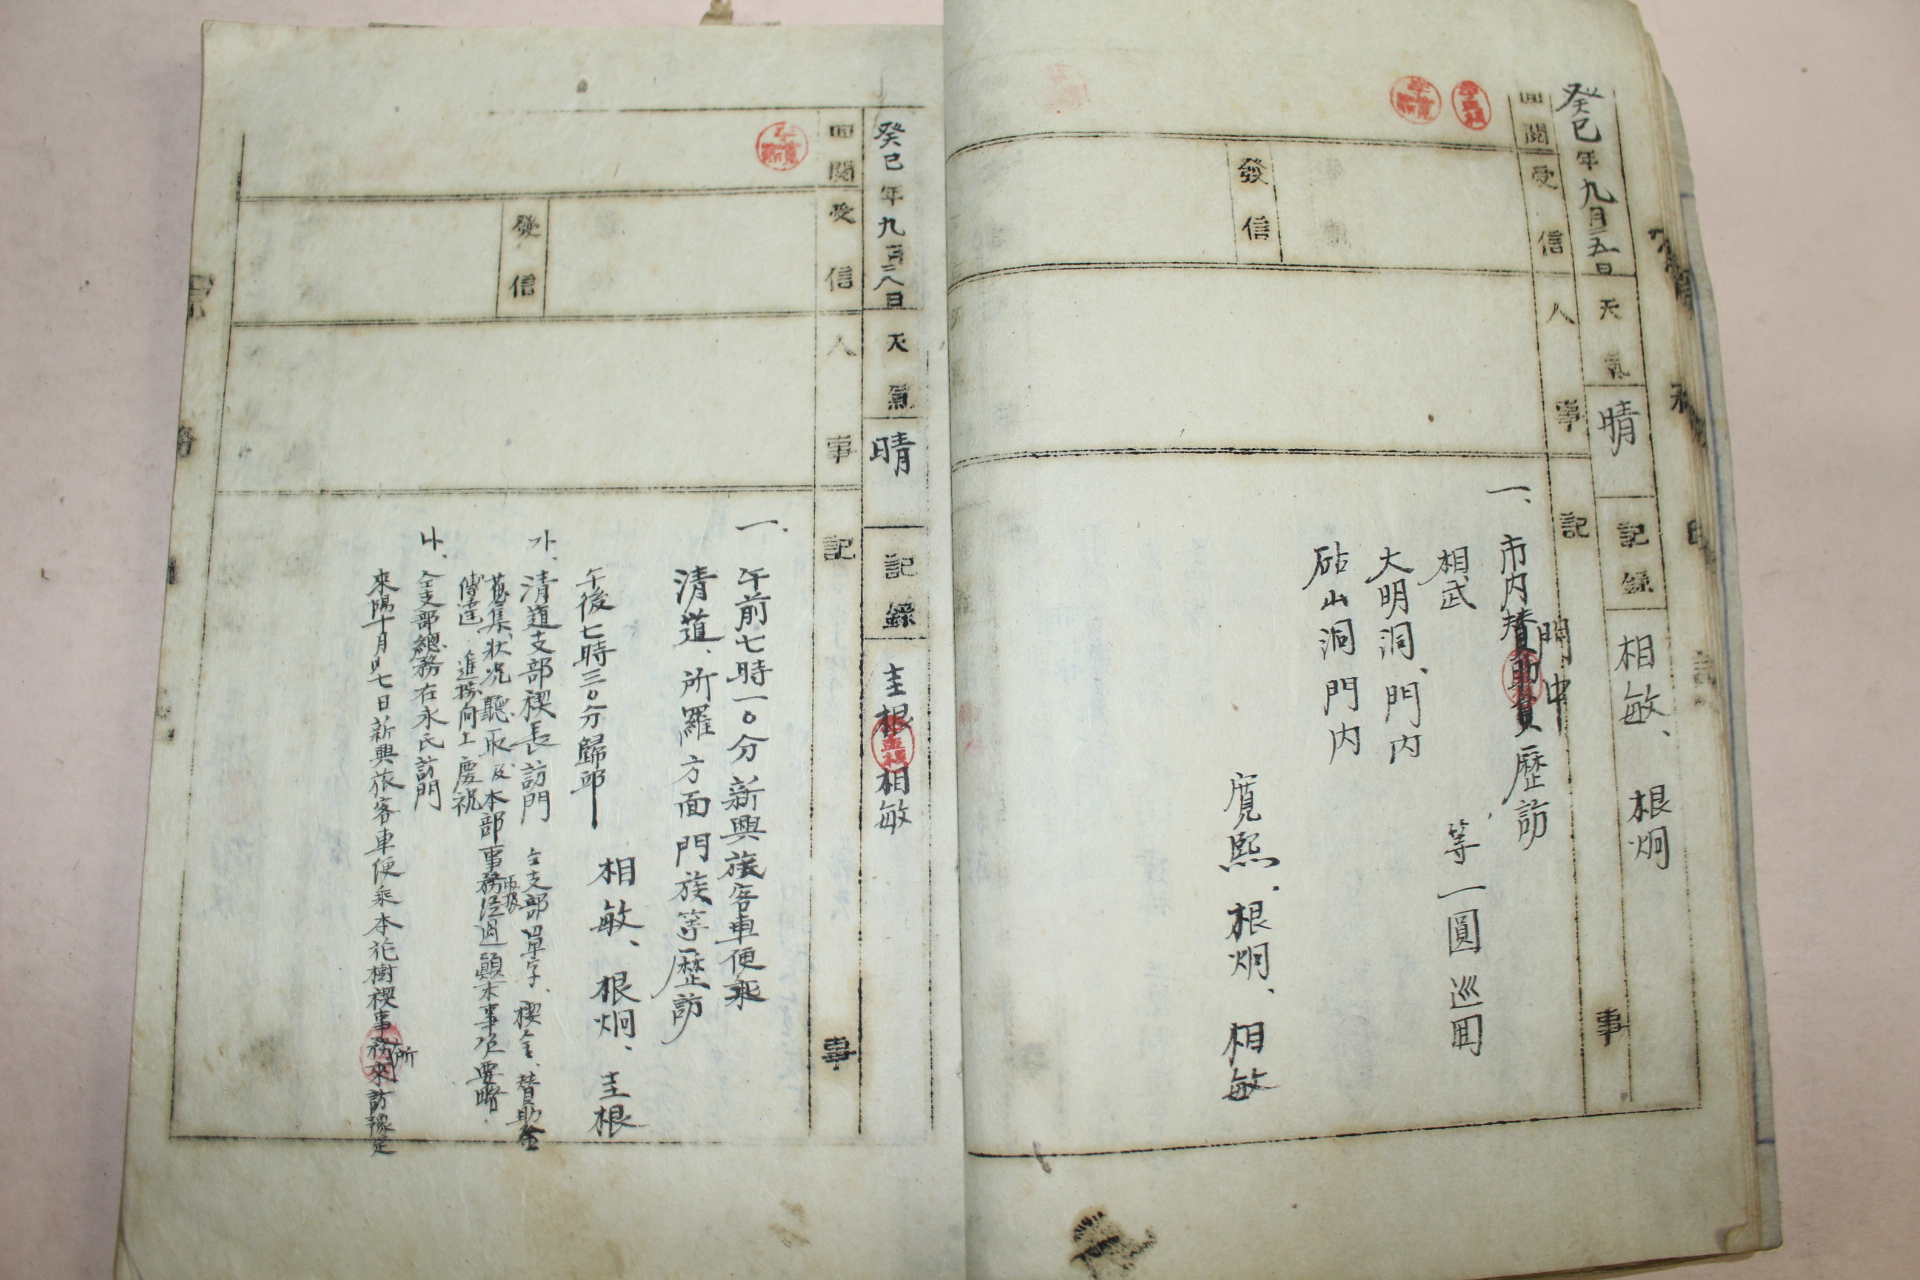 癸巳年九月二五日 天氣 晴 記錄 相敏、根炯
回閱 受信 人事 記事
發信
一、市内門中賛助員歷訪
相武 等一圓巡回
大明洞、門内
砧山洞門内
寬熙、根炯、相敏
癸巳年九月二八日 天氣 晴 記錄 圭根 相敏
回閱 受信 人事 記事
發信
一、午前七時一〇分新興旅客車便乘
清道、所羅方面門族等歷訪
午後七時三〇分歸邱
相敏、根炯、圭根
가、清道支部稧長訪門 仝支部單字、稧金、賛助金
蒐集狀況聽取及本部事務経過顚末事項要略
傳達 進捗向上慶祝
나、仝支部總務在永氏訪門
來陽十月 七日新興旅客車便乘本花樹稧事務所來訪豫定